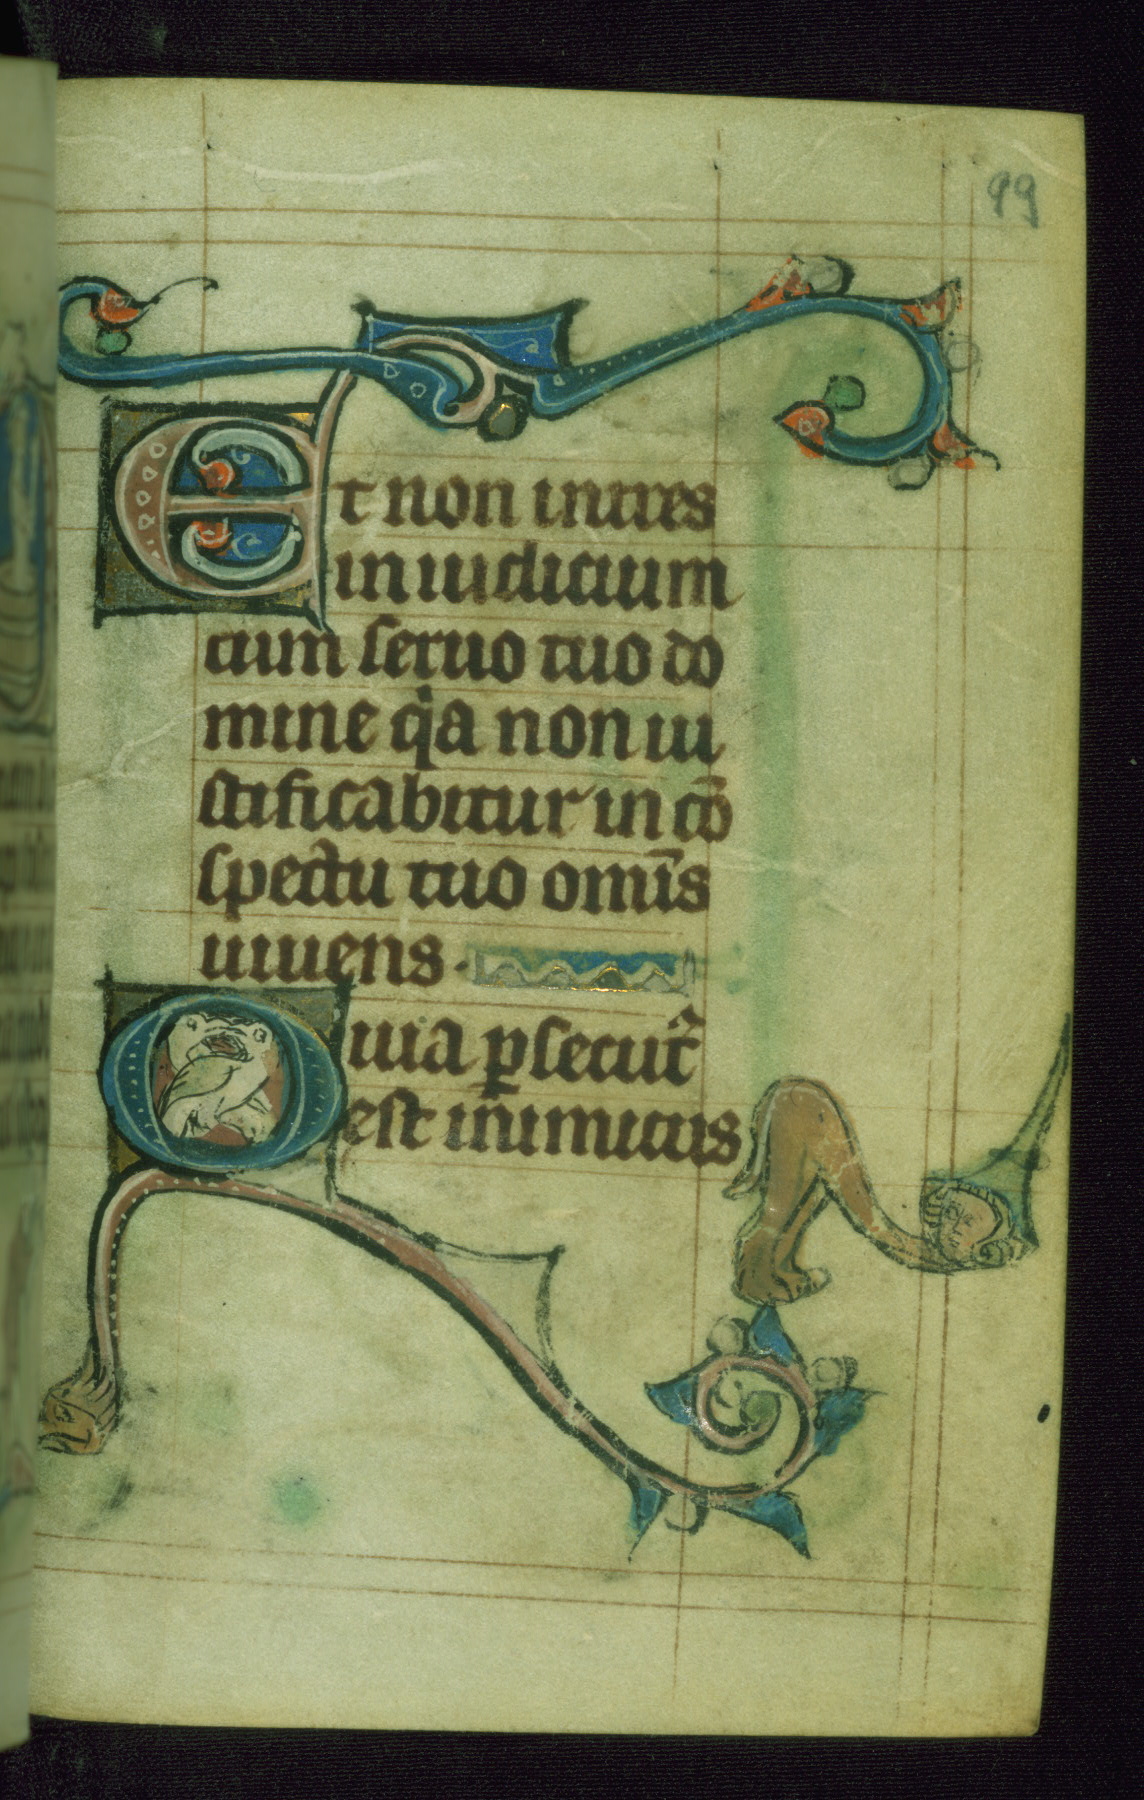 99
Et non intres
in iudicium
cum seruo tuo do
mine qͥa non iu
stificabitur in cō
spectu tuo omīs
uiuens·
Quia ꝑsecut᷑
est inimicus